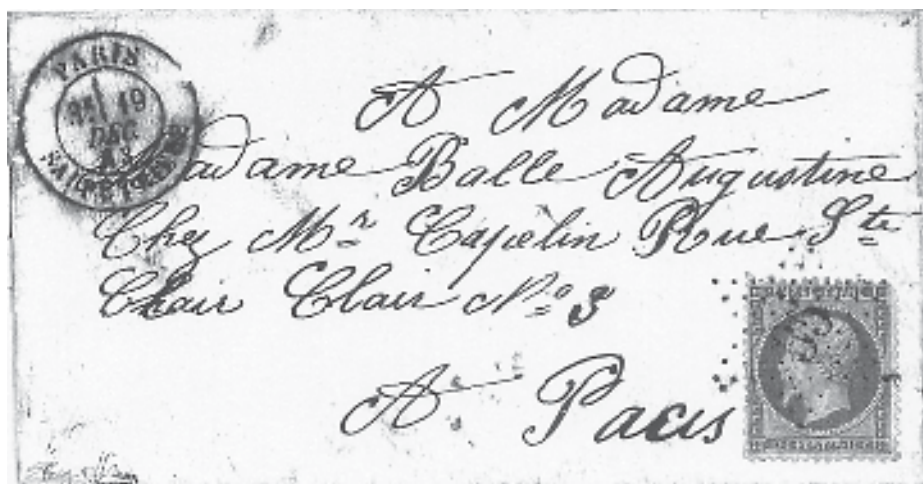 PARIS
19
DEC
A Madame
adame Balle Augustine
Chez Mr Capelin Rue Ste
Chair Clair No 3
A Paris